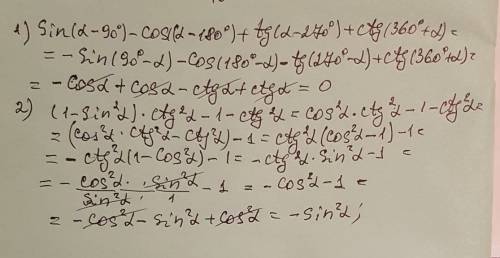 1) Sin(α-90°)-cos(α-180°)+tg(α-270°)+ctg(360°+α)=
=-Sin(90°-α)-cos(180°-α)-tg(270°-α)+ctg(360°+α)=
=-cosα+cosα-ctgα+ctgα=0
2) (1-sin²α)·ctg²α-1-ctg²α=cos²α·ctg²α-1-ctg²α=
=(cos²α·ctg²α-ctg²α)-1=ctg²α(cos²α-1)-1=
=-ctg²α(1-cos²α)-1=-ctg²α·sin²α-1=
=-cos²α·sin²α/sin²α·1-1=-cos²α-1=
=-cos²α-sin²α+cos²α=-sin²α;